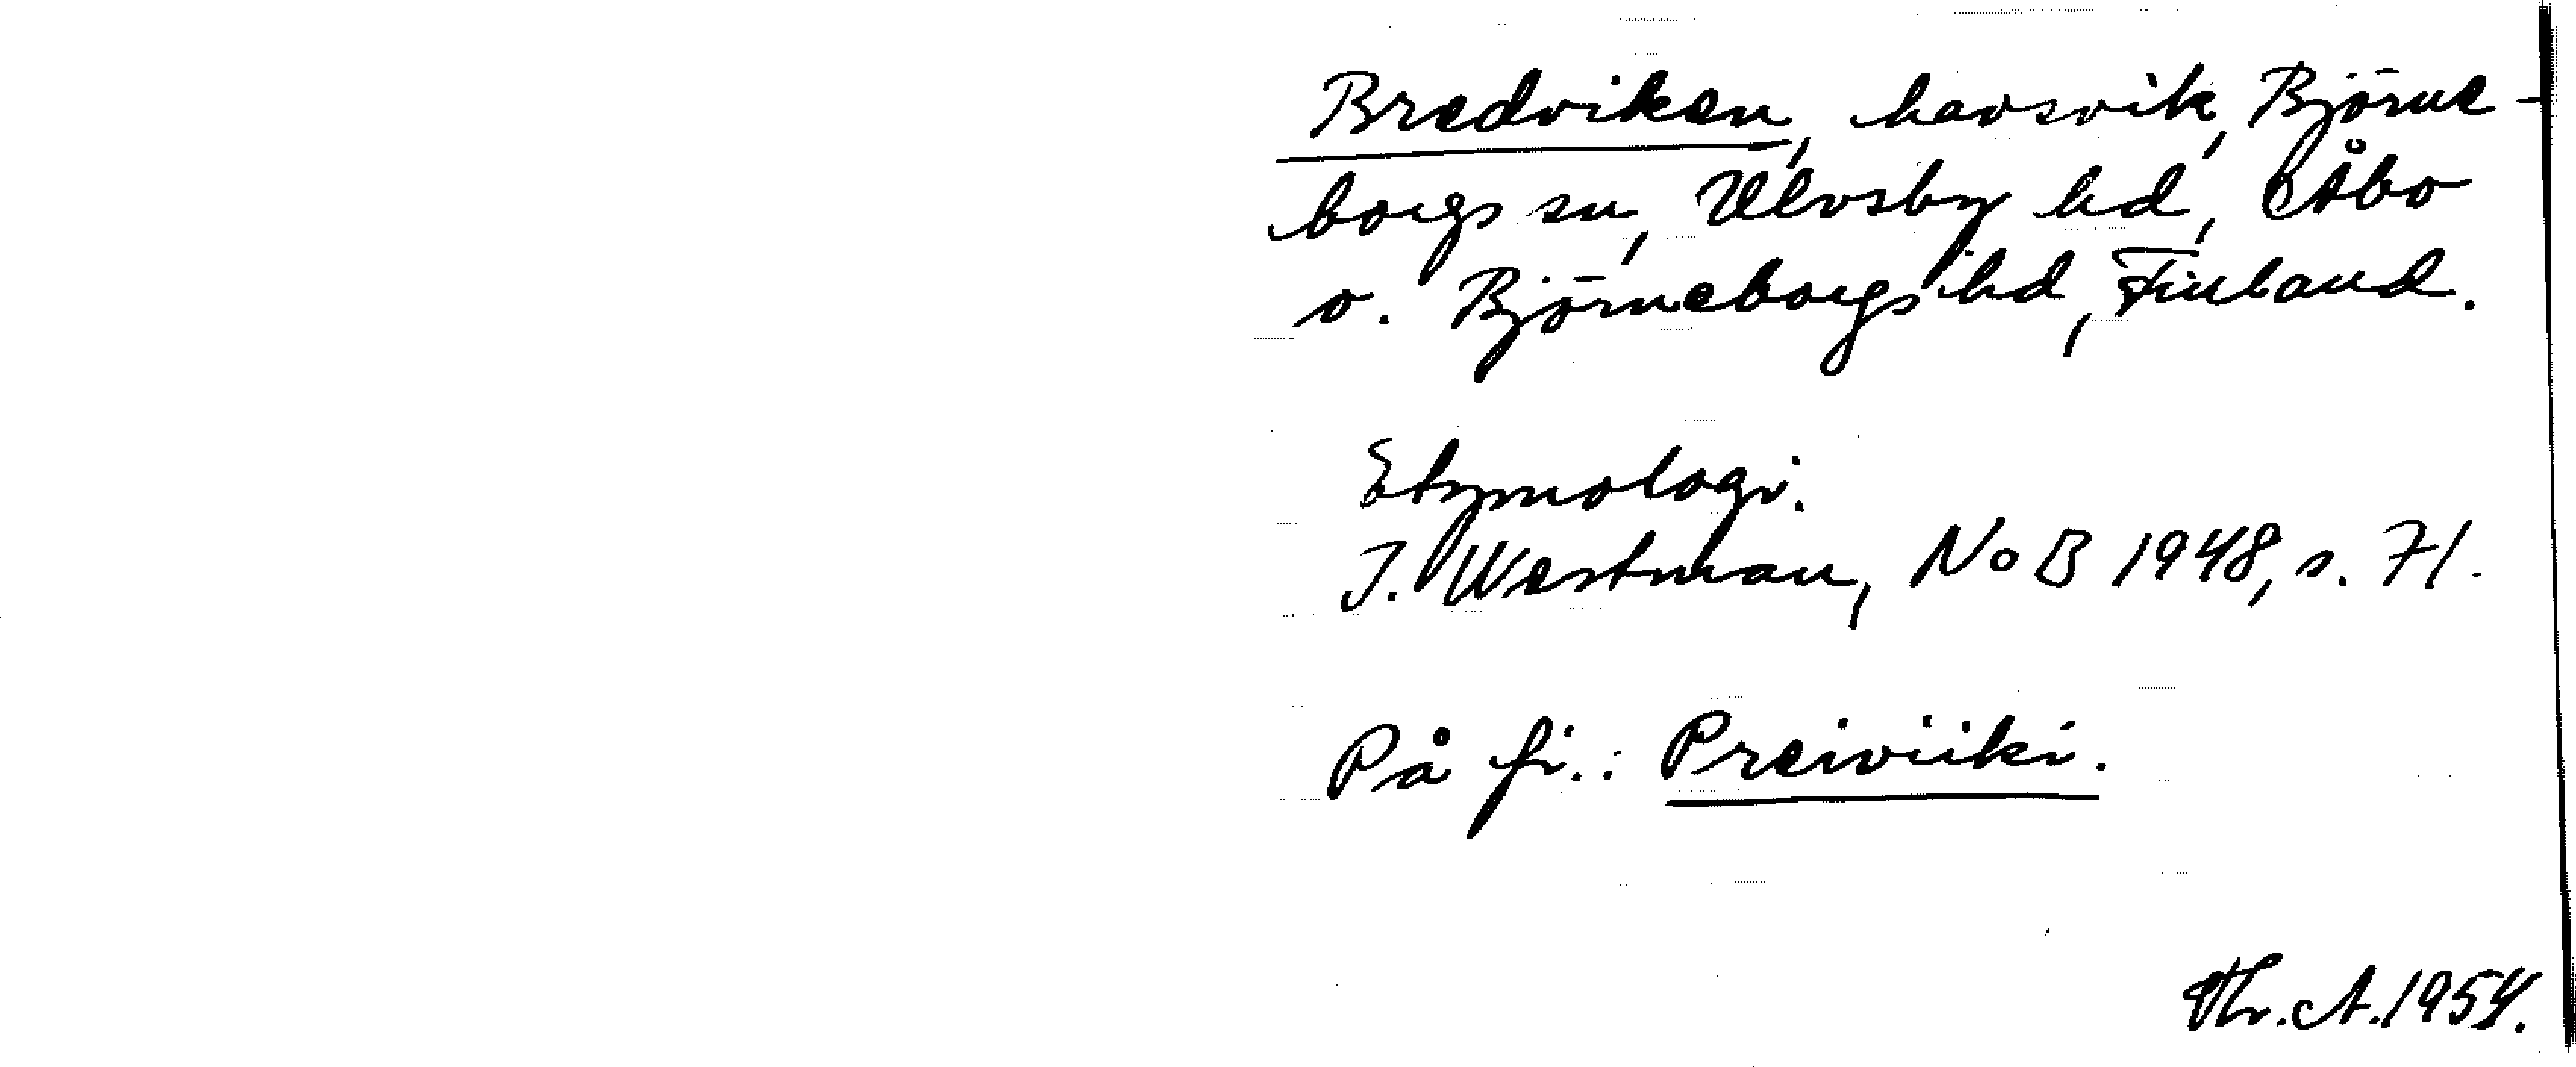 Bredviken, havsvik, Björne-
borgs sn, Ulvsby hd, Åbo
o. Björneborgs hd, Finland.
Etymologi.
I. Westman, NoB 1948, s. 71.
På fi.: Preiviiki.
Th. A. 1954.